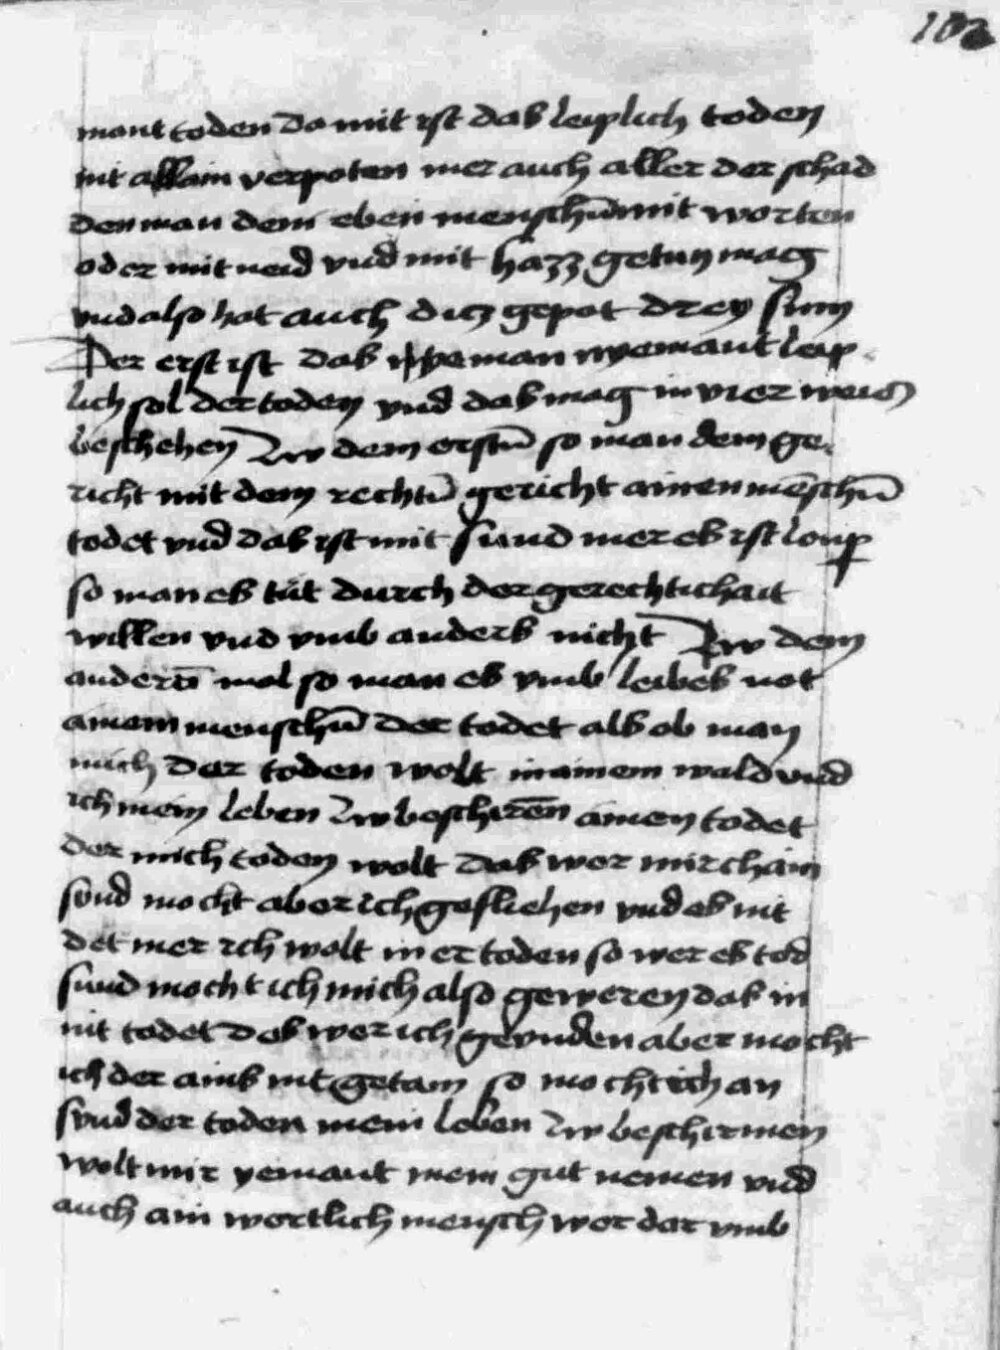 102
mant toden Da mit ist das leiplich toden
nit allain verpoten mer auch aller der schad
den man dem eben menschn̄ mit worten
oder mit neid vnd mit hazz getun mag
vnd also hat auch ditz gepot drey sinn
Der erst ist das nyeman nyemant leip
lich sol dertoden vnd das mag in vier weis
beschehen Zw dem erstn̄ so man dem ge
richt mit dem rechtn̄ gericht ainen mēschn̄
todet vnd das ist nit sund mer es ist lonp
so man es tut durch der gerechtichait
willen vnd vmb anders nicht Zw dem
andern̄ mol so man es vmb leibes not
ainem menschn̄ der todet als ob man
mich der toden wolt in ainem wald vnd
ich mein leben zw beschirēn ainen todet
der mich toden wolt das wer mir chain
sund mocht aber ich gefliehen vnd es nit
det mer ich wolt in er toden so wer es tod
sund mocht ich mich also geweren das in
nit todet das wer ich gepunden aber mocht
ich der ains nit getain so mocht ich an
sund der toden mein leben zw beschirmen
wolt mir yemant mein gut nemen vnd
auch ain wertlich mensch wer dar vmb